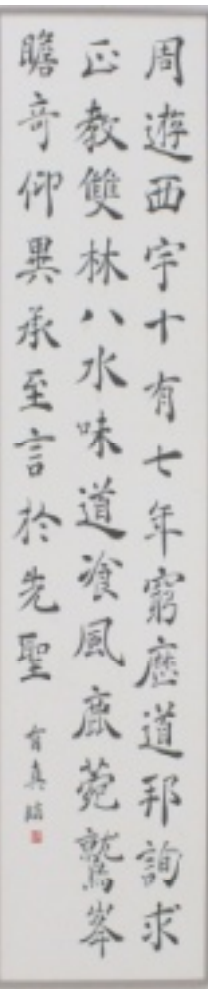 周遊西宇十有七年窮歷道邦詢求
正教雙林八水味道飡風鹿菀鷲峯
瞻奇仰異承至言於先聖